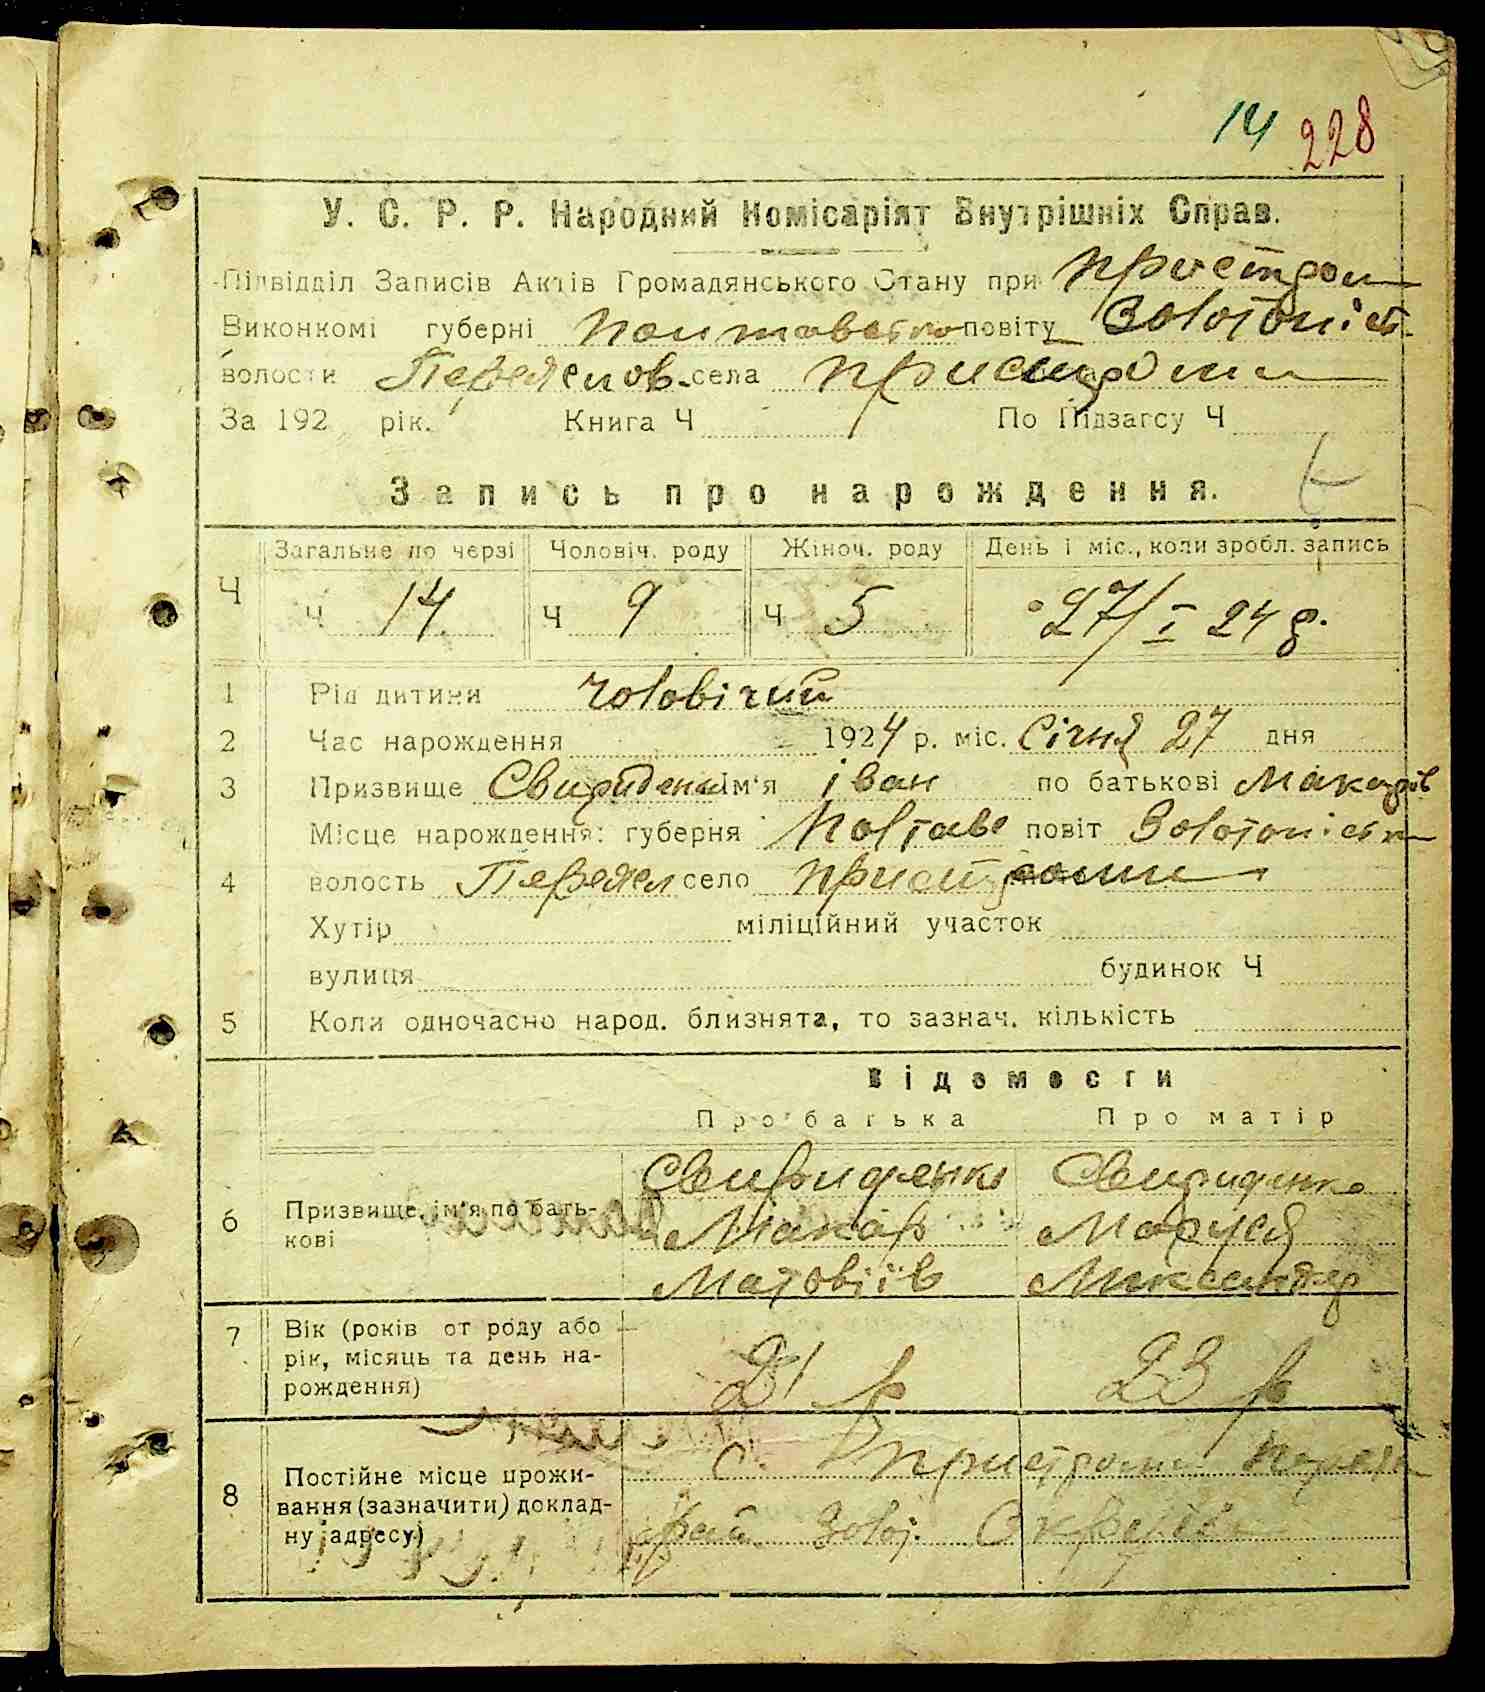 14 228
У. С. Р. Р. Народний Комісаріят Внутрішніх Справ.
Підвідділ Записів Актів Громадянського Стану при Пристром
Виконкомі губерні Полтавської повіту Золотоніст.
волости Переяслов. села Пристроми
За 192 рік. Книга Ч По Підзагсу Ч
Запись про нарождення.
Загальне по черзі Чоловіч. роду Жіноч. роду День і міс., коли зробл. запись
Ч Ч 14 Ч 9 Ч 5 27/I 24 р.
1 Рід дитини чоловічий
2 Час нарождення 1924 р. міс. Січня 27 дня
3 Призвище Свириденко Ім'я Іван по батькові Макарів
Місце нарождення: губерня Полтавс повіт Золотоніськ
4 волость Переясл село Пристроми
Хутір міліційний участок
вулиця будинок Ч
5 Коли одночасно народ. близнята, то зазнач. кількість
Відомости
Про батька Про матір
6 Призвище, ім'я по батькові
Свириденко Свириденко
Макар Маруся
Матовіїв
7 Вік (років от роду або рік, місяць та день нарождення)
21 р 23 р
8 Постійне місце прожи-
вання (зазначити) доклад-
ну адресу)
с. Пристроми Переясл
рай Золот. Округи